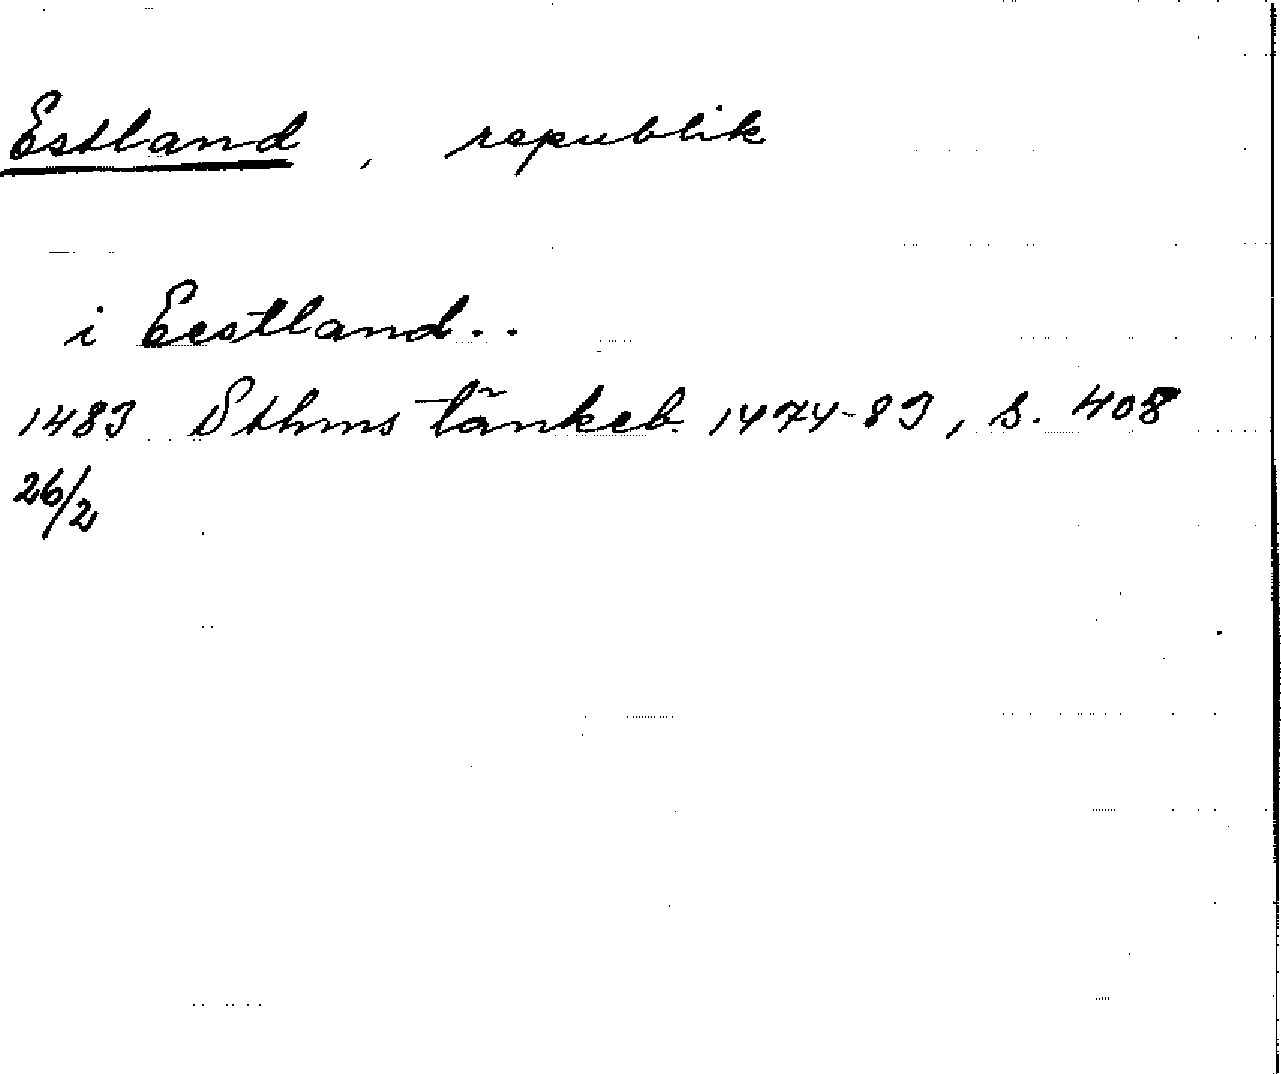 Estland, republik
i Eestland..
1483 Sthms tänkeb. 1474-83, s. 408
26/2